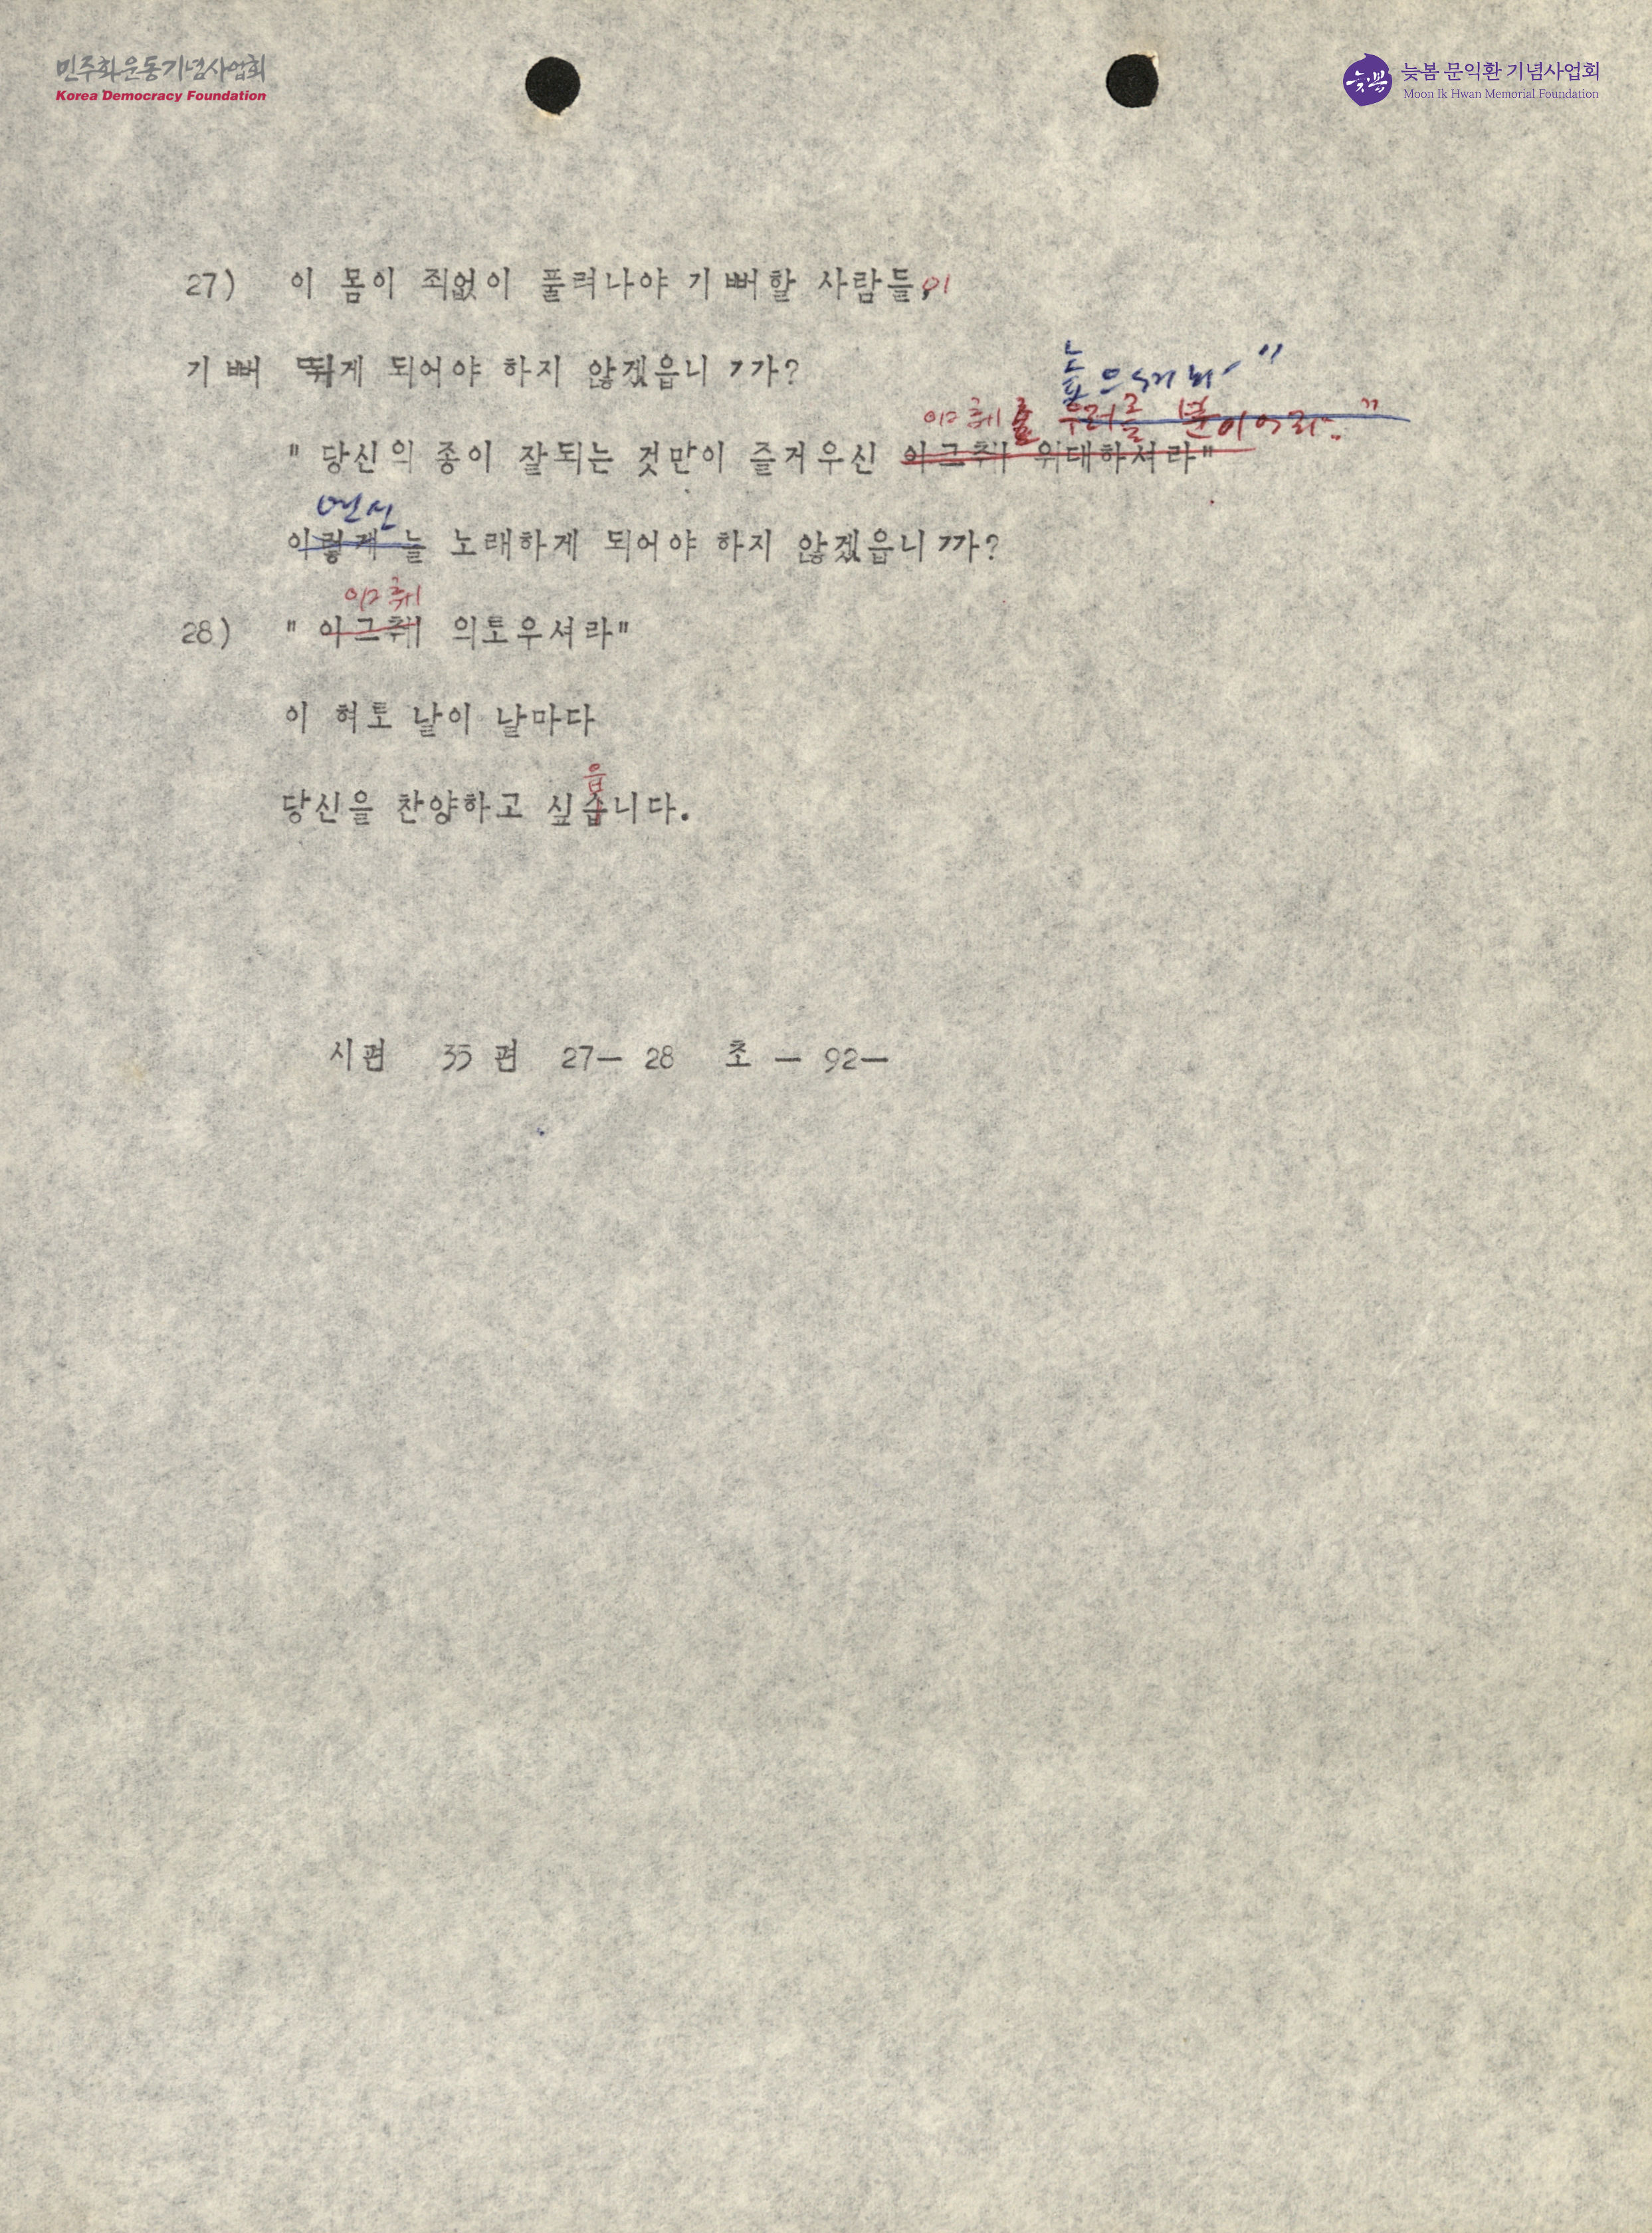 민주화운동기념사업회
Korea Democracy Foundation
늦봄
늦봄 문익환 기념사업회
Moon Ik Hwan Memorial Foundation
27) 이 몸이 죄없이 풀려나야 기뻐할 사람들,이
기뻐 뛰게 되어야 하지 않겠읍니까?
높으셔라"
야훼 우러를 분이어라."
" 당신의 종이 잘되는 것만이 즐거우신 야그훼 위대하셔라"
연신
이렇게 늘 노래하게 되어야 하지 않겠읍니까?
야훼
28) " 야그훼 의로우셔라"
이 혀로 날이 날마다
읍
당신을 찬양하고 싶습니다.
시편 35 편 27— 28 초 — 92—